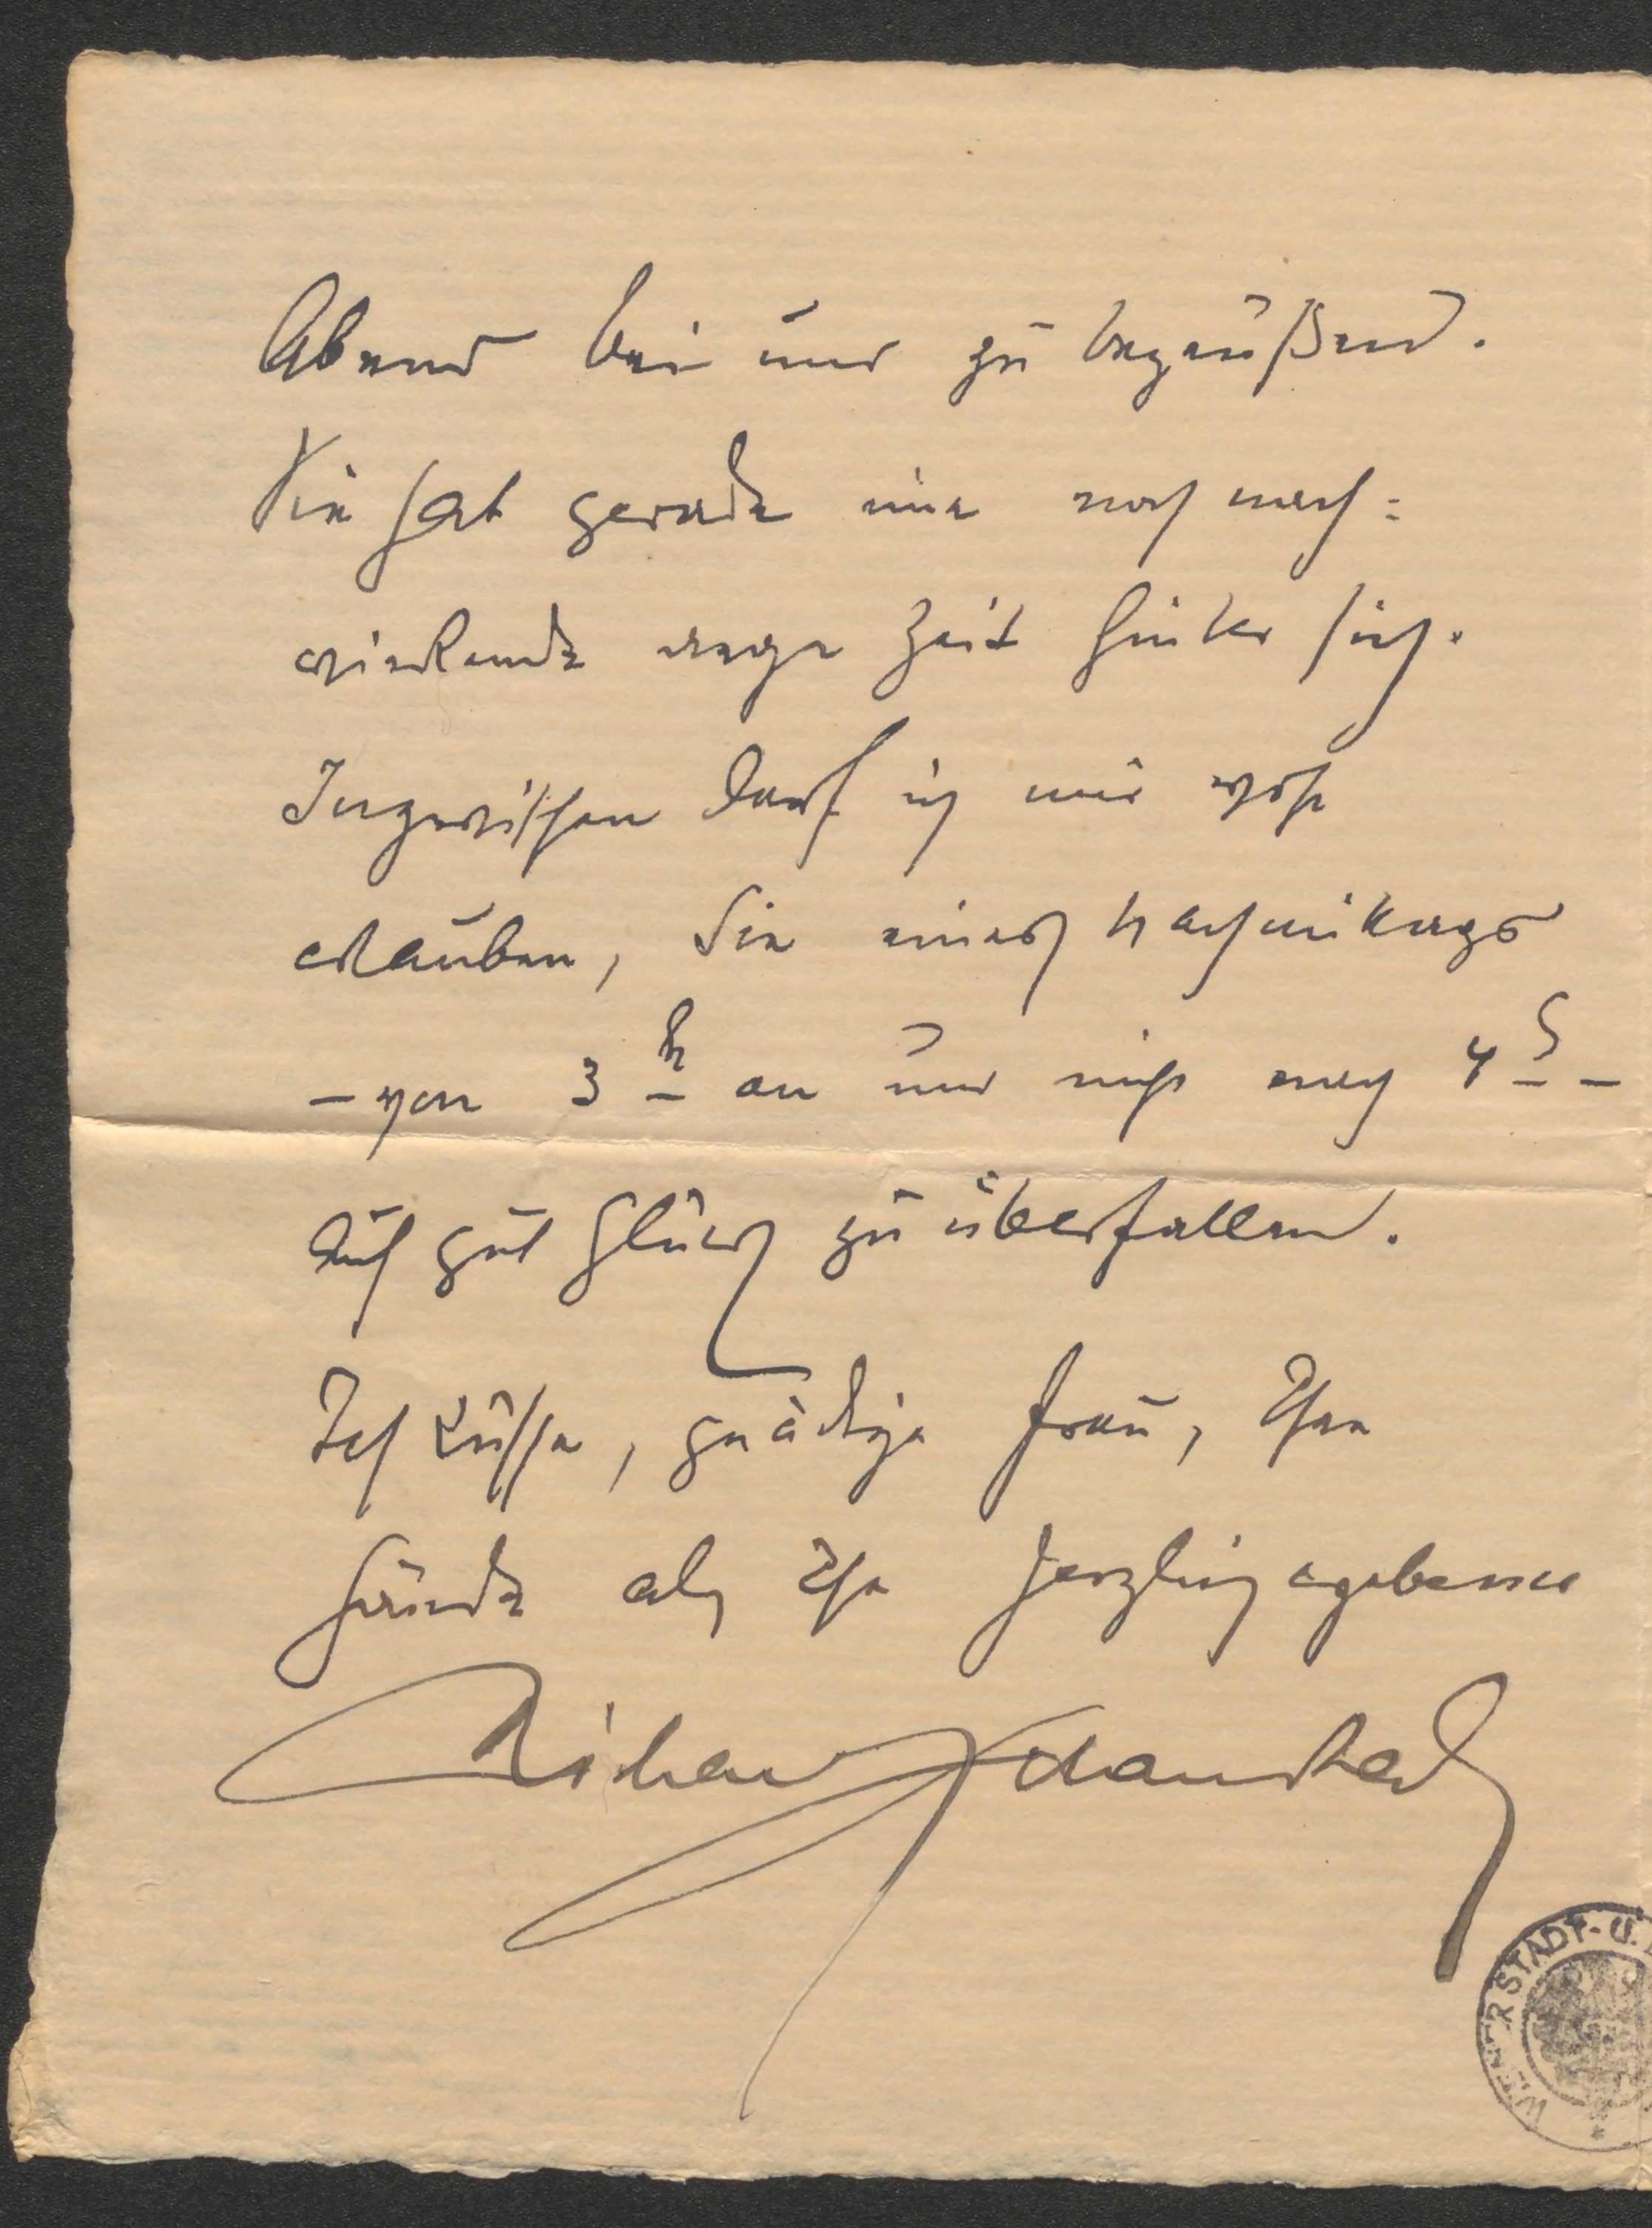 Abend bei uns zu begrüßen.
Sie hat gerade eine noch nach=
wirkende arge Zeit hinter sich.
Inzwischen darf ich mir wohl
erlauben, Sie eines Nachmittags
– von 3 h an und nicht nach 4 h –
auf gut Glück zu überfallen.
Ich küsse, gnädige Frau, Ihre
Hände als Ihr herzlich ergebener
Richard Schaukal
WIENER STADT- U.